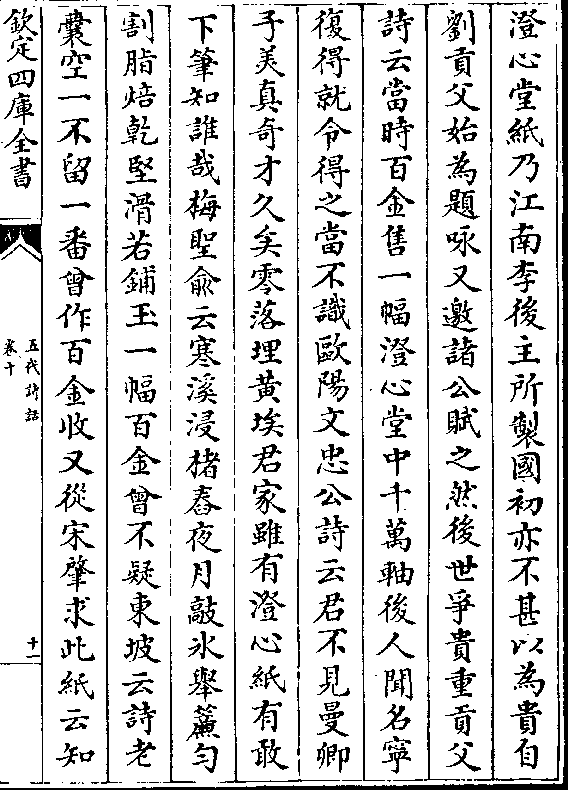 澄心堂紙乃江南李後主所製國初亦不甚以為貴自
劉貢父始為題咏又邀諸公賦之然後世爭貴重貢父
詩云當時百金售一幅澄心堂中千萬軸後人聞名寧
復得就令得之當不識歐陽文忠公詩云君不見曼卿
子美真奇才久矣零落埋黄埃君家雖有澄心紙有敢
下筆知誰哉梅聖俞云寒溪浸楮舂夜月敲氷舉簾勻
割脂焙乾堅滑若鋪玉一幅百金曾不疑東坡云詩老
囊空一不留一番曾作百金收又從宋肇求此紙云知
欽定四庫全書
五代詩話
卷十
十一